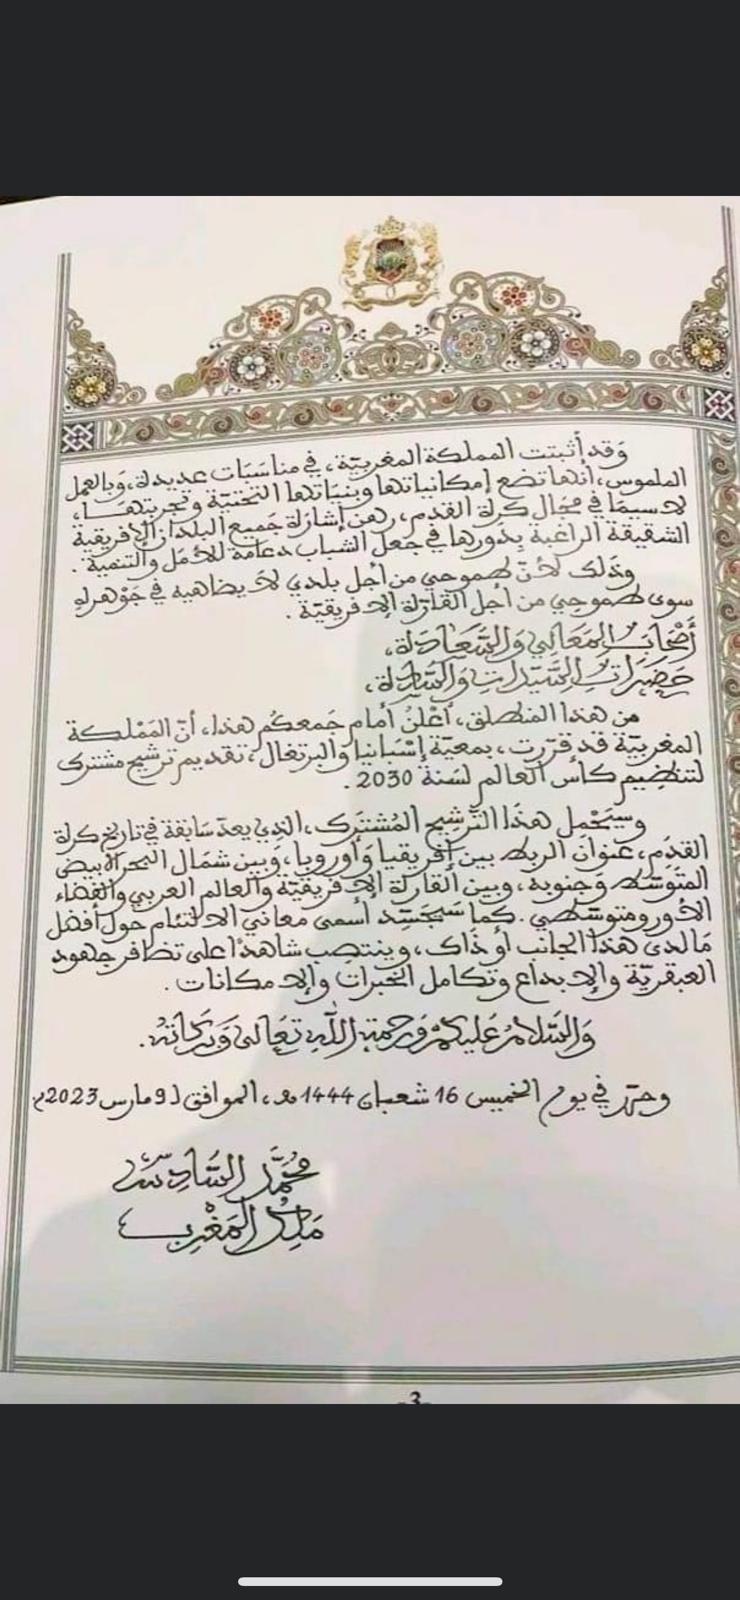 وَقد أثبتت المملكة المغربيّة، في مناسَبَات عديدة، وَبالعمل
الملموس، أنها تضع إمكانياتها وبنيَاتها التحتيّة وتجربتهَا،
لا سيمَا في مجَال كرة القدَم، رهن إشارة جَميع البلدان الإفريقية
الشقيقة الراغبة بدَورها في جَعل الشباب دعامة للأمَل والتنمية.
وذلك لأنّ طموحي من أجل بلدي لا يضاهيه في جَوْهره
سوى طموحي من أجل القارّة الإفريقيّة.
أصْحَابَ المَعَالي وَالسَّعَادَة،
حَضَرات السَّيّدات وَالسَّادة،
من هذا المنطلق، أعْلنُ أمام جَمعكم هذا، أنّ المَمْلكة
المغربيّة قد قرّرت، بمعيّة إسْبانيا والبرتغال، تقديم ترشيح مشترك
لتنظيم كأس العالم لسَنة 2030.
وسيَحْمل هذا التّرشيح المُشترَك، الذي يعدّ سَابقة في تاريخ كرة
القدَم، عنوَان الربط بين إفريقيا وَأوروبا، وَبين شمَال البحر الأبيض
المتوَسّط وَجنوبه، وَبين القارة الإفريقيّة والعالم العربي والفضاء
الأورومتوسّطي. كما سَيجَسّد أسمى معاني الالتئام حول أفضل
مَا لدى هذا الجانب أو ذَاك، وينتصب شاهدًا على تضافر جهود
العبقريّة والإبداع وتكامل الخبرات والإمكانات.
وَالسَّلامُ عَليكمْ وَرحمة اللَّه تعَالى وَبَركاتهُ.
وحرّر في يوم الخميس 16 شعبان 1444هـ، الموافق لـ 9 مارس 2023م
مُحمَّد السَّادسُ
مَلكُ المَغْرب
-3-